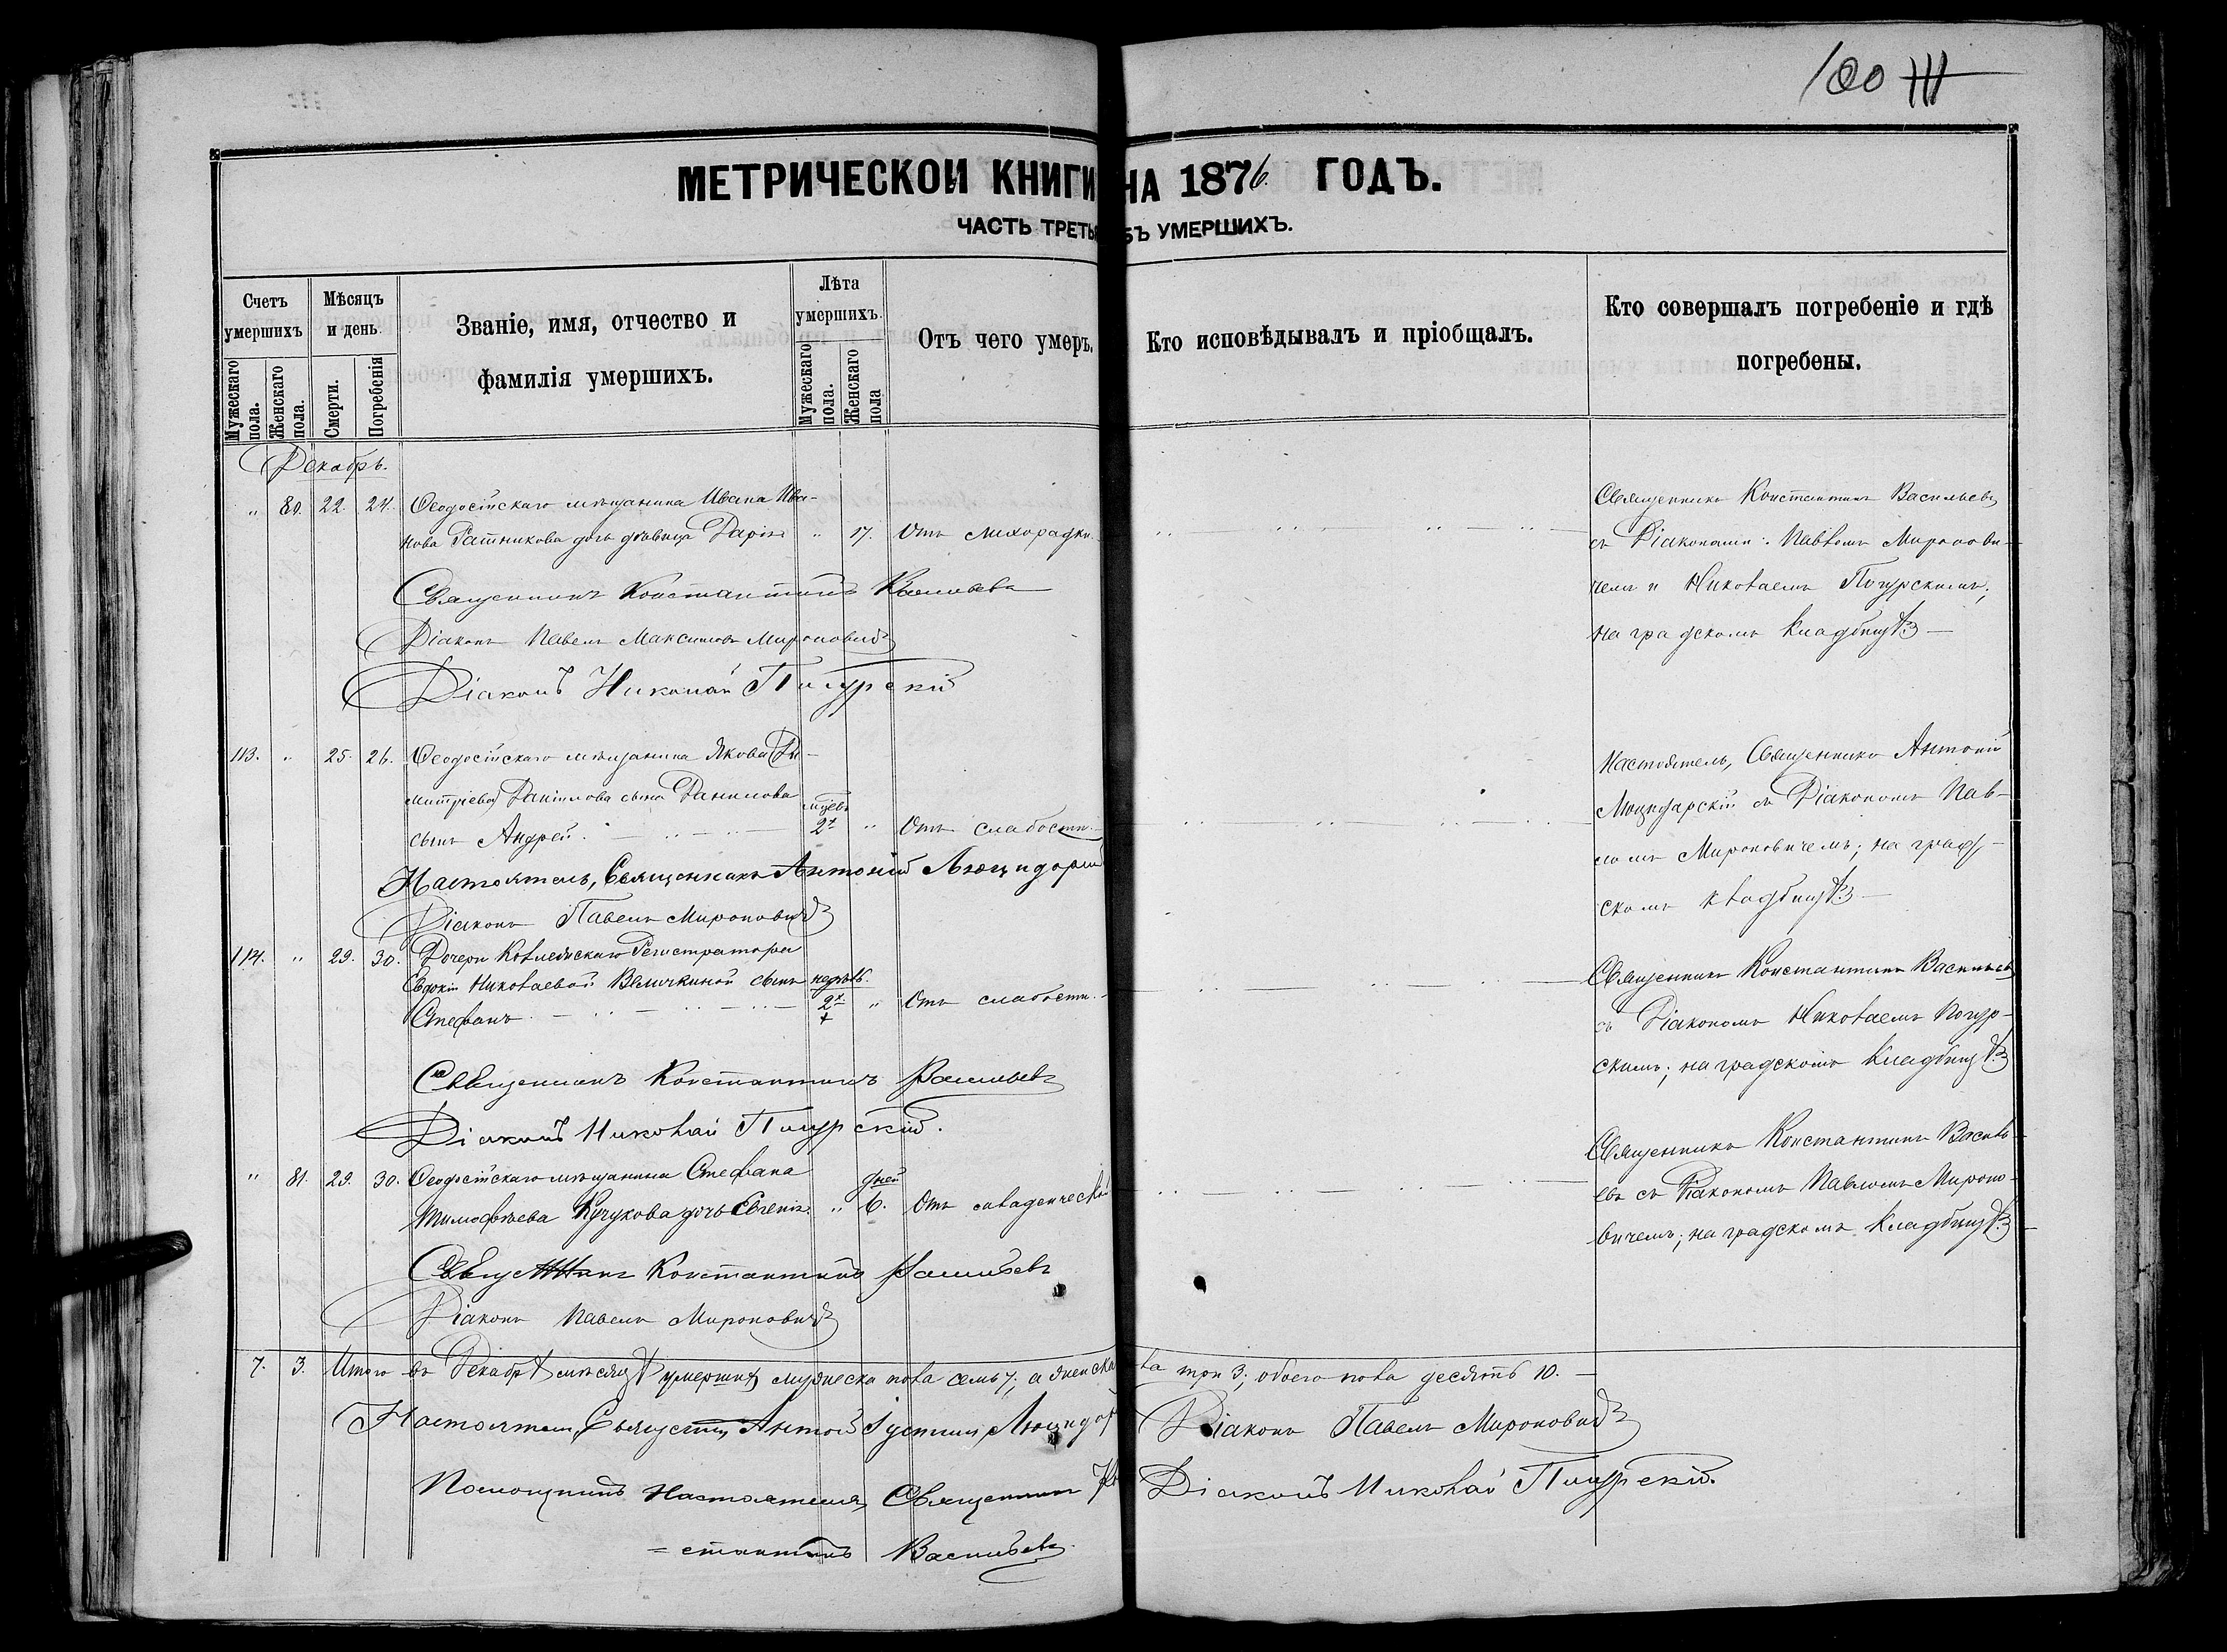 100
МЕТРИЧЕСКОЙ КНИГИ НА 1876 ГОДЪ.
ЧАСТЬ ТРЕТЬ БЪ УМЕРШИХЪ.
Счетъ умершихъ
Мужескаго пола.
Женскаго пола.
Мѣсяцъ и день.
Смерти.
Погребенія
Званіе, имя, отчество и
фамилія умершихъ.
Лѣта умершихъ.
Мужескаго пола.
Женскаго пола
Отъ чего умеръ.
Кто исповѣдывалъ и пріобщалъ.
Кто совершалъ погребеніе и гдѣ
погребены.
Декабрь.
" 80. 22. 24. Ѳеодосійскаго мѣщанина Ивана Ива-
нова Ратникова дочь дѣвица Дарія " 17. Отъ лихорадки.
Священникъ Константинъ Васильевъ
съ Діаконами: Павломъ Миронови-
чемъ и Николаемъ Пигурскимъ;
на градскомъ кладбищѣ
Священникъ Константинъ Васильевъ
Діаконъ Павелъ Максимовъ Мироновичъ
Діаконъ Николай Пигурскій
113. " 25. 26. Ѳеодосійскаго мѣщанина Якова Ди-
митріева Даніилова сына Данилова
сынъ Андрей. мцевъ 2х " Отъ слабости.
Настоятель, Священникъ Антоній
Люцидарскій съ Діакономъ Пав-
ломъ Мироновичемъ; на град-
скомъ кладбищѣ
Настоятель, Священникъ Антоній
Діаконъ Павелъ Мироновичъ
114. " 29. 30. Дочери Коллежскаго Регистратора
Евдокіи Николаевой Величкиной сынъ
Стефанъ недѣль 2х " Отъ слабости.
Священникъ Константинъ Васильевъ
съ Діакономъ Николаемъ Пигур-
скимъ; на градскомъ кладбищѣ
Священникъ Константинъ Васильевъ
Діаконъ Николай Пигурскій.
" 81. 29. 30. Ѳеодосійскаго мѣщанина Стефана
Тимофѣева Кучукова дочь Евгенія. " дней 6. Отъ младенческой
Священникъ Константинъ Василь-
евъ съ Діакономъ Павломъ Мироно-
вичемъ; на градскомъ кладбищѣ
Священникъ Константинъ Васильевъ
Діаконъ Павелъ Мироновичъ
7. 3. Итого въ Декабрѣ мѣсяцѣ умершихъ мужеска пола семь 7; а женска
ла три 3; обоего пола десять 10.
Настоятель, Священ. Антоній Іустинъ Люцидар
Діаконъ Павелъ Мироновичъ
Помощникъ Настоятеля, Священникъ Кон
Діаконъ Николай Пигурскій.
= стантинъ Васильевъ.